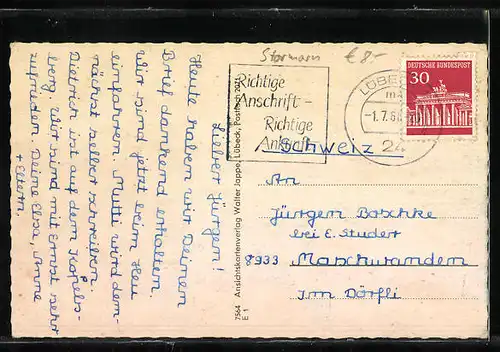 Stormarn € 8,-
Richtige
Anschrift -
Richtige
Ankunft
LÜBECK
-1.7.6
24
DEUTSCHE BUNDESPOST
30
Lieber Jürgen!
Heute haben wir Deinen
Brief dankend erhalten.
Wir sind jetzt beim Heu
einfahren. Mutti wird dem-
nächst selber schreiben.
Dietrich ist auf dem
berg. Wir sind mit Ernst sehr
zufrieden. Deine Elsa, Anne
+ Eltern.
7564 Ansichtskartenverlag Walter Jappe, Lübeck, Postfach 2071
E 1
Schweiz
An
Jürgen Boschke
bei E. Studer
8933 Maschwanden
Im Dörfli